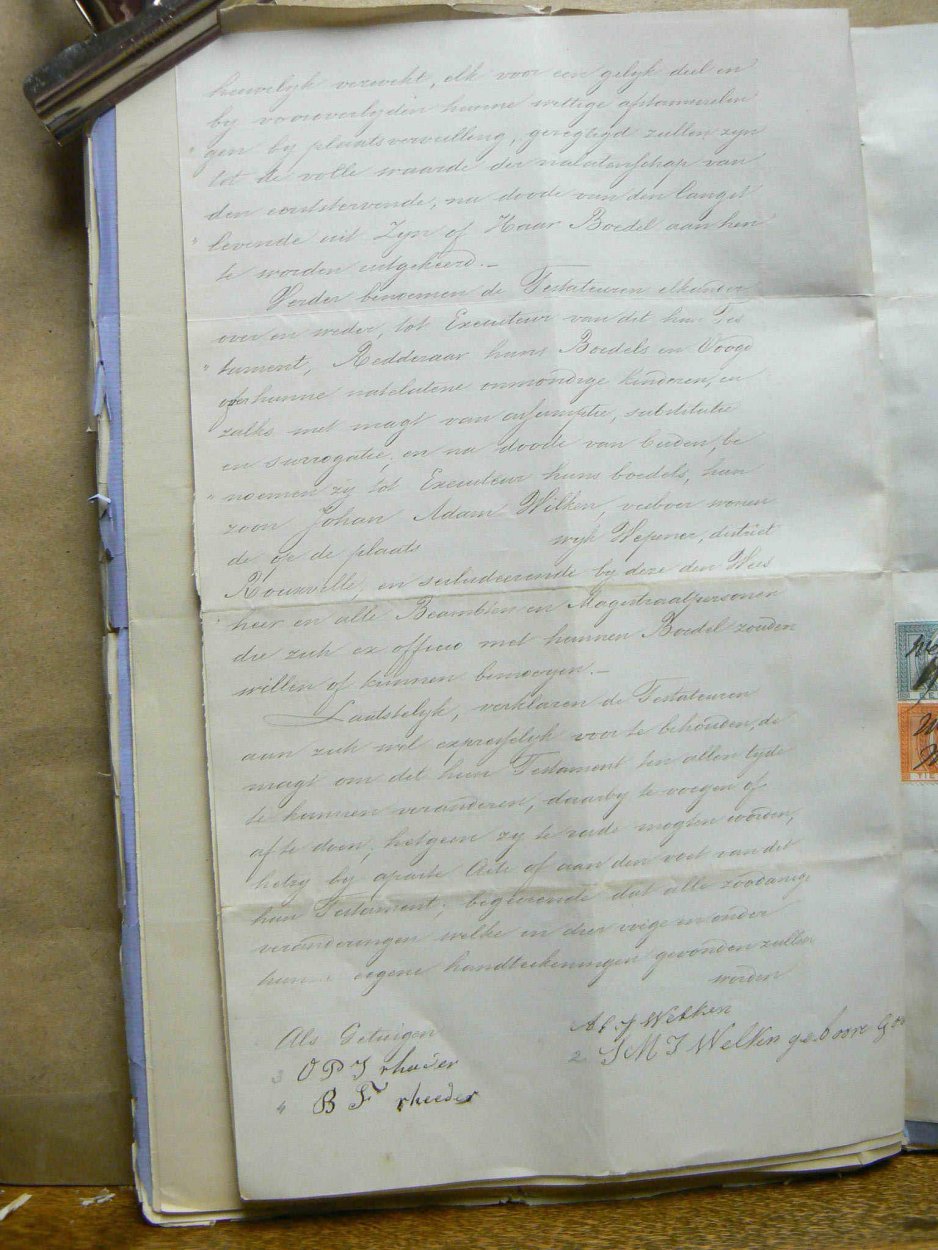 huwelijk verwekt, elk voor een gelijk deel en
by vooroverlyden hunne wettige afstammelin
gen by plaatsvervulling, geregtigd zullen zyn
tot de volle waarde der nalatenschap van
den eerststervende, na doode van den langst
levende uit Zyn of Haar Boedel aan hen
te worden uitgekeerd.—
Verder benoemen de Testateuren elkander
over en weder, tot Executeur van dit hun Tes
tament, Redderaar huns Boedels en Voogd
over hunne natelatene onmondige kinderen, en
zulks met magt van assumptie, substitutie
en surrogatie, en na doode van beiden, be
noemen zy tot Executeur huns boedels, hun
zoon Johan Adam Wilken, veeboer wonen
de op de plaats wyk Wepener, district
Rouxville, en secludeerende by deze den Wees
heer en alle Beambten en Magistraatpersonen
die zich ex officio met hunnen Boedel zouden
willen of kunnen bemoeyen.—
Laatstelyk, verklaren de Testateuren
aan zich wel expresselyk voor te behouden, de
magt om dit hun Testament ten allen tyde
te kunnen veranderen, daarby te voegen of
af te doen, hetgeen zy te rade mogten worden,
hetzy by aparte Acte of aan den voet van dit
hun Testament; begeerende dat alle zoodanige
veranderingen welke in dier voege en onder
hunne eigene handteekeningen gevonden zullen
worden
Als Getuigen
3 O P J rheeder
4 B F rheeder
J Welken
2 S M J Welken geboore